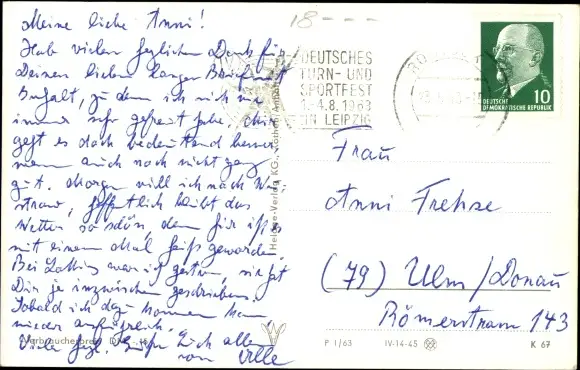 Meine liebe Anni!
Hab vielen herzlichen Dank für
Deinen lieben langen Brief mit
Inhalt, zu dem ich mich wie
immer sehr gefreut habe. Mir
geht es doch bedeutend besser,
wenn auch noch nicht ganz
gut. Morgen will ich nach
hoffentlich bleibt das
Wetter so schön, denn hier ist es
mit einem Mal heiß geworden.
Bei war ich gestern, sie hat
Dir ja inzwischen geschrieben.
Sobald ich dazu kommen kann
wieder ausführlich.
Viele herzl. Grüße Euch allen
von Ulle
18 - - -
DEUTSCHES
TURN- UND
SPORTFEST
1.-4.8.1963
IN LEIPZIG
DEUTSCHE
DEMOKRATISCHE REPUBLIK
10
Frau
Anni Frehse
(79) Ulm/Donau
Römerstrasse 143
Verbraucherpreis
P 1/63 IV-14-45 K 67